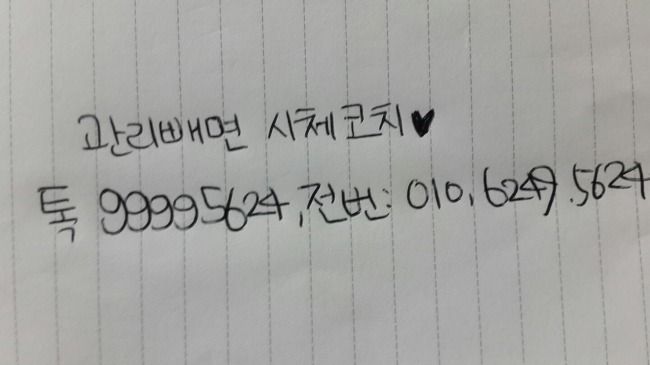 관리배면 시체코치♥
톡 99995624, 전번: 010.6249.5624